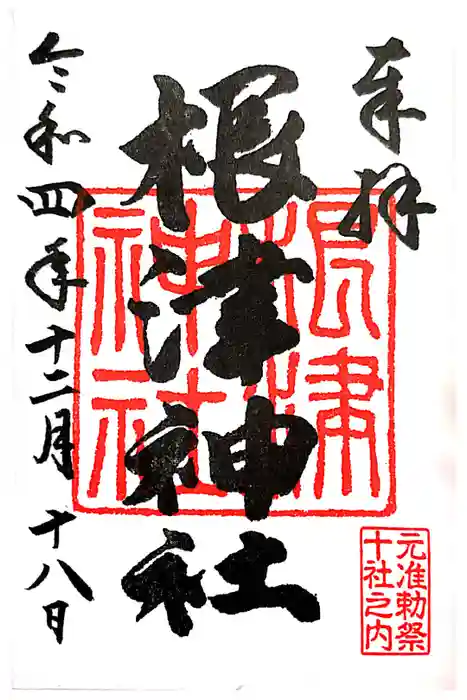 奉拝
根津神社
令和四年十二月十八日
根津神社
元准勅祭
十社之内